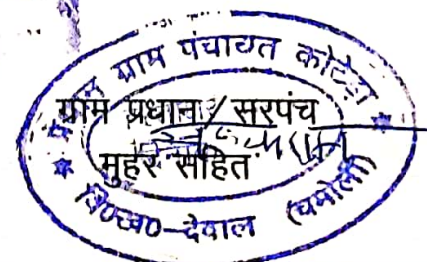 ग्राम पंचायत कोटेड़ा
ग्राम प्रधान / सरपंच
मुहर सहित
वि०ख०-देवाल (चमोली)